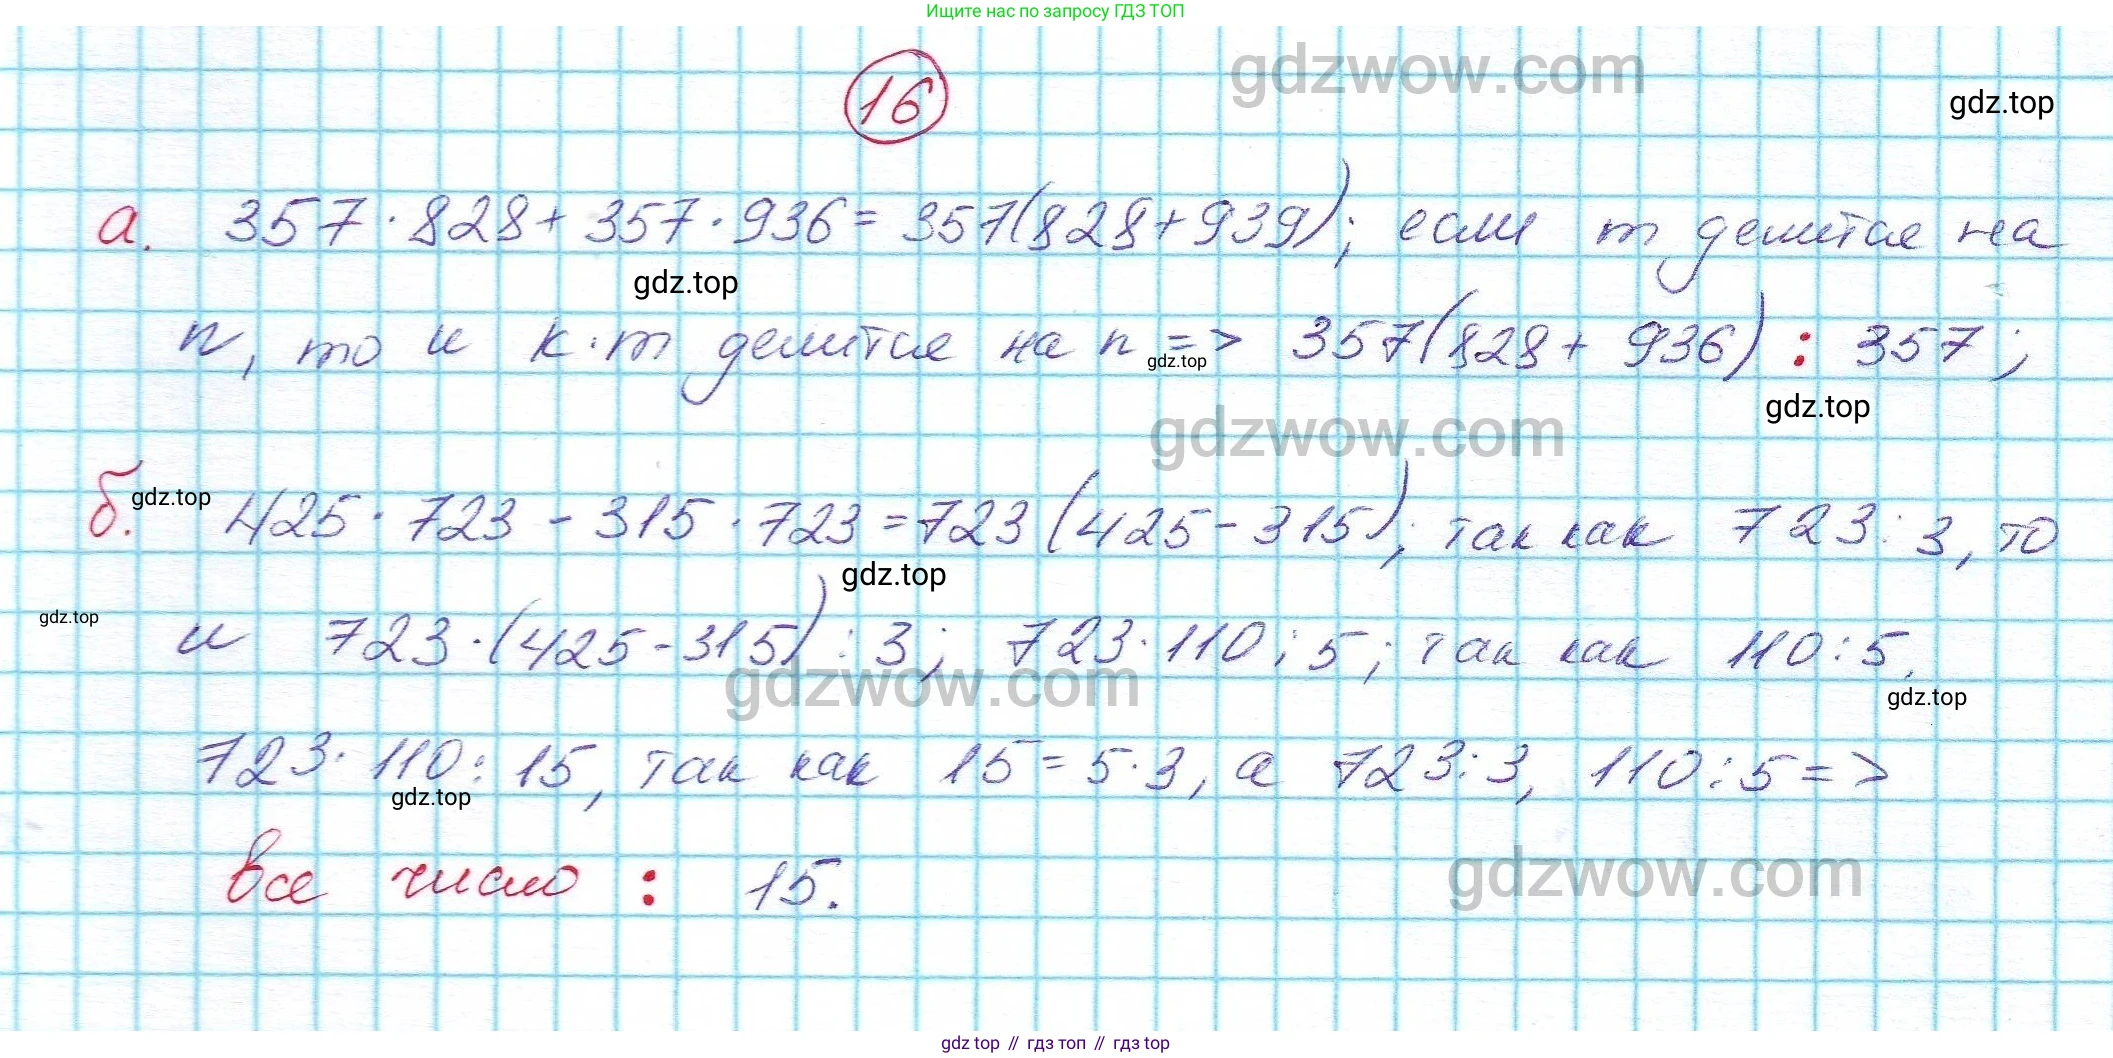 Ищите нас по запросу ГДЗ ТОП
gdzwow.com
16
gdz.top
а. 357·828+357·936=357(828+939); если m делится на
gdz.top
n, то и к·m делится на n => 357(828+936) : 357;
gdz.top
gdz.top
gdzwow.com
б. gdz.top 425·723-315·723=723(425-315); так как 723:3, то
gdz.top
gdz.top
и 723·(425-315):3; 723·110:5; так как 110:5,
gdzwow.com
gdz.top
723·110:15, так как 15=5·3, а 723:3, 110:5=>
gdz.top
все число : 15.
gdzwow.com
gdz top // гдз топ // гдз top